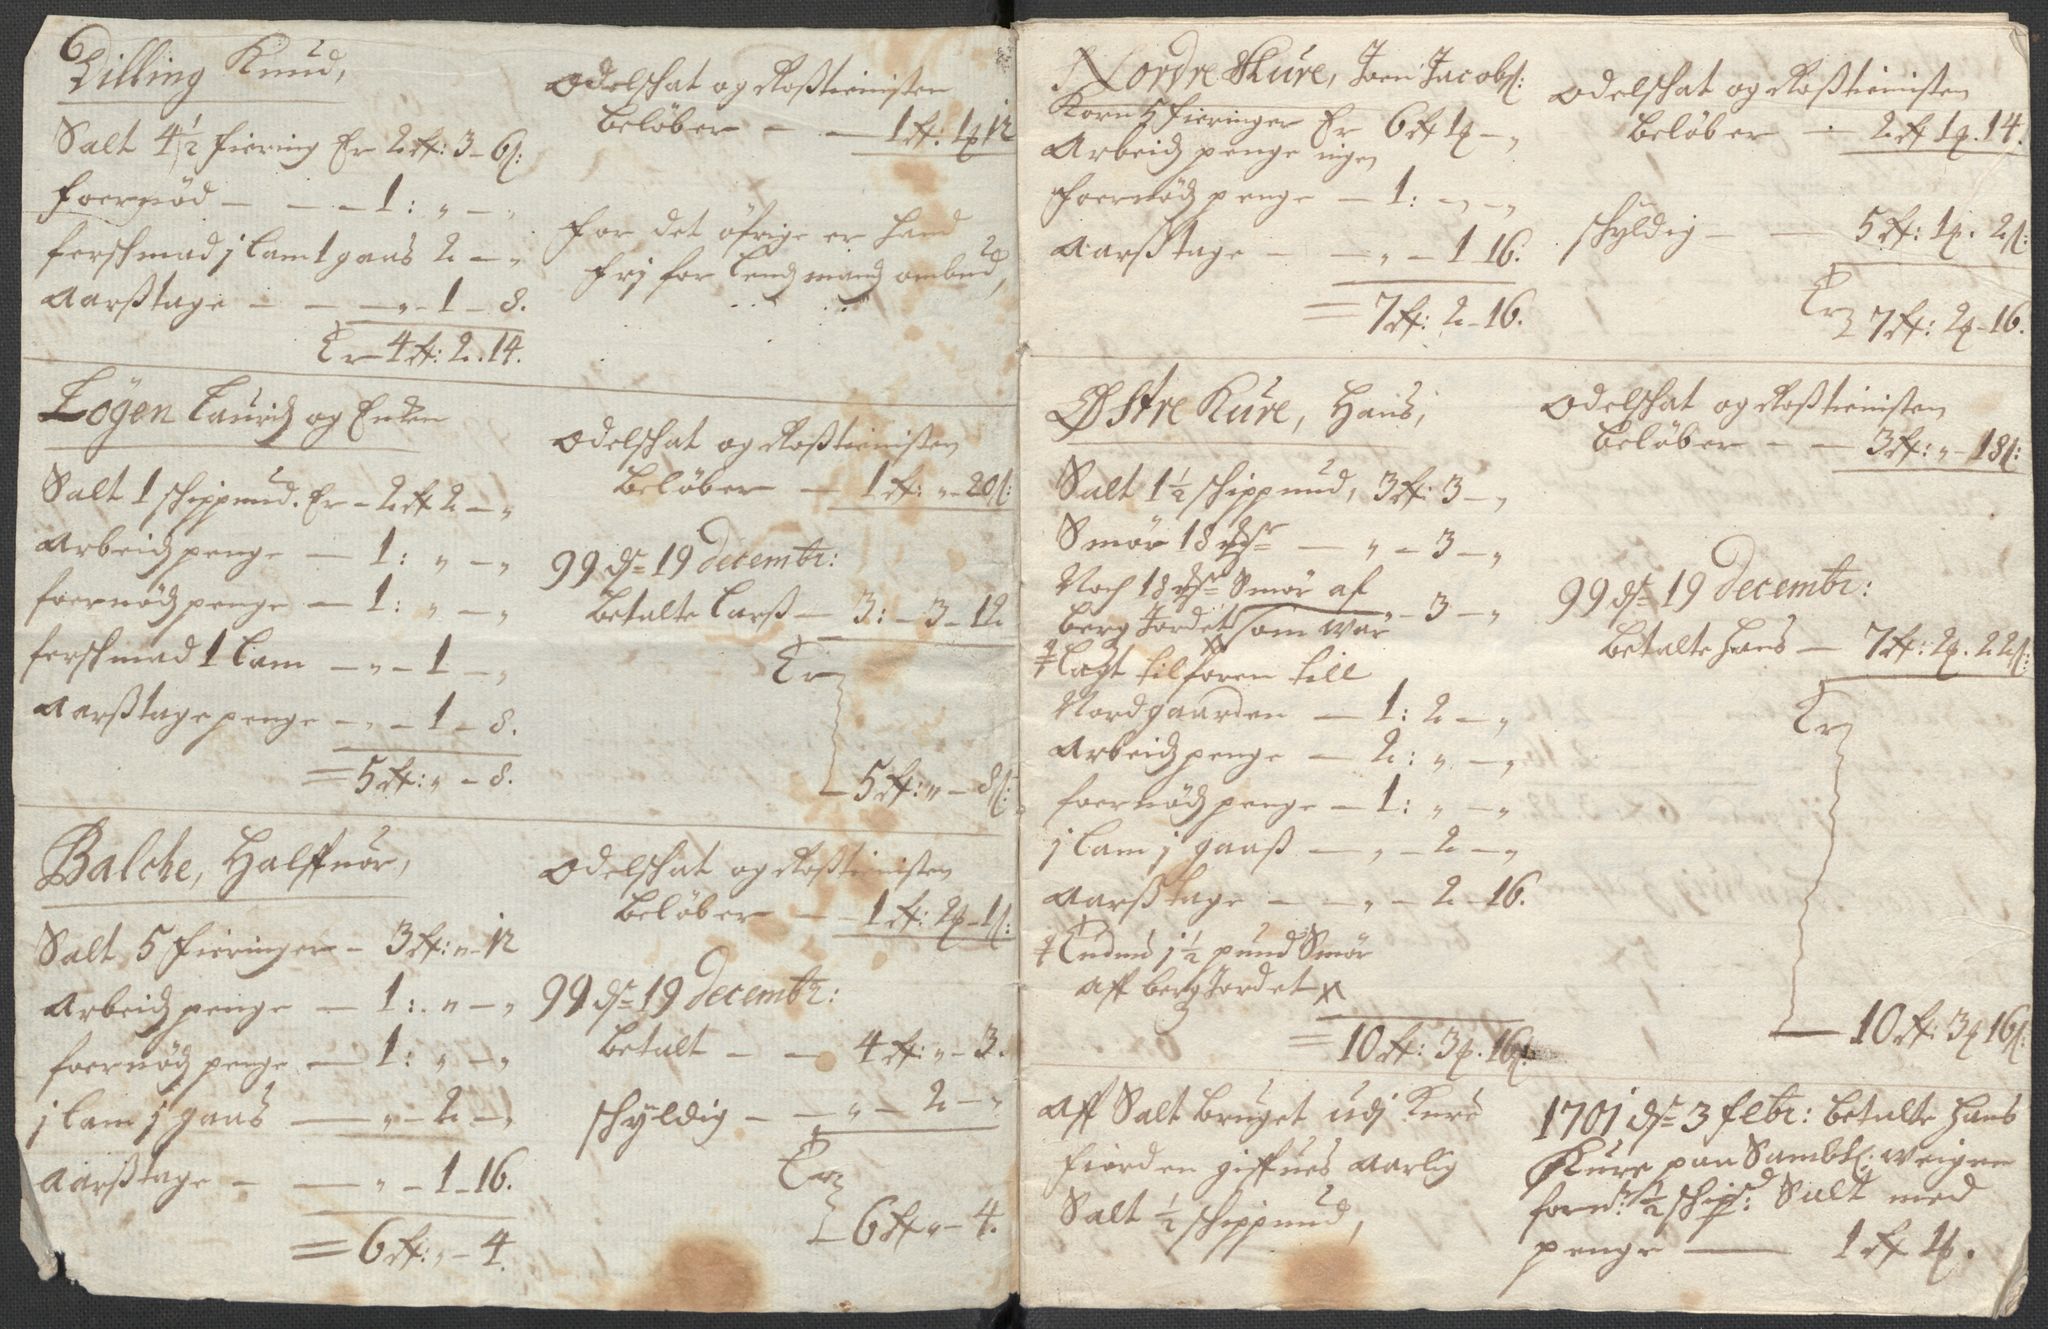 6
Dilling Knud,
Salt 4½ fiering Er 2 rt: 3 - 6 s:
foernød - - - 1: „ - „
ferschmad j lam 1 gaas 2 - „
Aarßtage - - - „ - 1 - 8.
Er - 4 rt: 2. 14.
Odelschat og Roßtienisten
beløber - - 1 rt: 1 p 12
for det øfrige er hand
frj for lendz mandz ombud,
Løgen Lauridz og Enken
Salt 1 schippund. Er - 2 rt 2 - „
Arbeidz penge - 1: „ - „
foernødz penge - 1: „ - „
ferschmad 1 lam - „ - 1 - „
Aarßtage penge - „ - 1 - 8.
= 5 rt: „ - 8.
Odelschat og Roßtienisten
beløber - 1 rt: „ - 20 s:
99 ds 19 decembr:
betalte Larß - 3: - 3 - 12
Er
5 rt: „ - 8 s:
Balche, Halffuor,
Salt 5 fieringer - 3 rt: „ - 12
Arbeidz penge - 1: „ - „
foernødz penge - 1: „ - „
j lam j gaas - „ - 2 - „
Aarßtage - - „ - 1 - 16.
= 6 rt: „ - 4.
Odelschat og Roßtienisten
beløber - 1 rt: 2 p - 1 s:
99 ds 19 decembr:
betalt - - 4 rt: „ - 3.
schyldig - - „ - 2 - „
Er
6 rt „ - 4.
Nordre Kure, Joen Jacobs:
Korn 5 fieringer Er 6 rt 1 p - „
Arbeidz penge ingen
foernødz penge - 1: „ - „
Aarßtage - - „ - 1 16.
= 7 rt: 2 - 16.
Odelschat og Roßtienisten
beløber - 2 rt 1 p. 14.
schyldig - - 5 rt: 1 p. 2 s:
Er 7 rt: 2 p - 16.
Østre Kure, Hans,
Salt 1½ schippund, 3 rt: 3 - „
Smør 18 - „ - 3 - „
Noch 18 Smør af
berg Jordet „ - 3 - „
som war
lagt tilforen till
Nordgaarden - 1: 2 - „
Arbeidz penge - 2: „ - „
foernødz penge - 1: „ - „
j lam j gaaß - „ - 2 - „
Aarßtage - - „ - 2 - 16.
Endnu j ½ pund Smør
aff berg Jordet x
= 10 rt: 3 p. 16 s:
Odelschat og Roßtienisten
beløber - - 3 rt: „ - 18 s:
99 ds 19 decembr:
betalte Hans - 7 rt: 2 p. 22 s:
Er
10 rt: 3 p 16 s:
Aff Salt bruget udj Kure
fiorden giffues aarlig
Salt ½ schippund,
1701 ds 3 febr: betalte Hans
Kure paa Sambtl: weigne
forn: ½ schip: Salt med
penge - 1 rt 1 p.